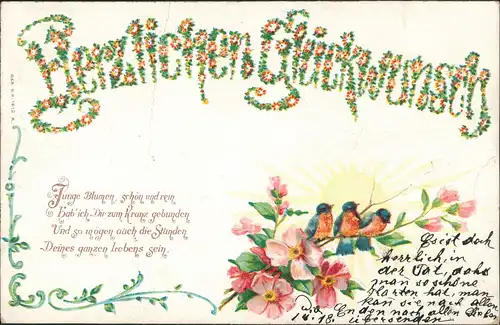 Herzlichen Glückwunsch
Junge Blumen schön und rein
Hab' ich Dir zum Kranz gebunden
Und so mögen auch die Stunden
Deines ganzen Lebens sein.
Es ist doch
herrlich, in
der Tat, dass
man so schöne
Karten hat, man
kan sie nach allen
Enden nach allen
übersenden